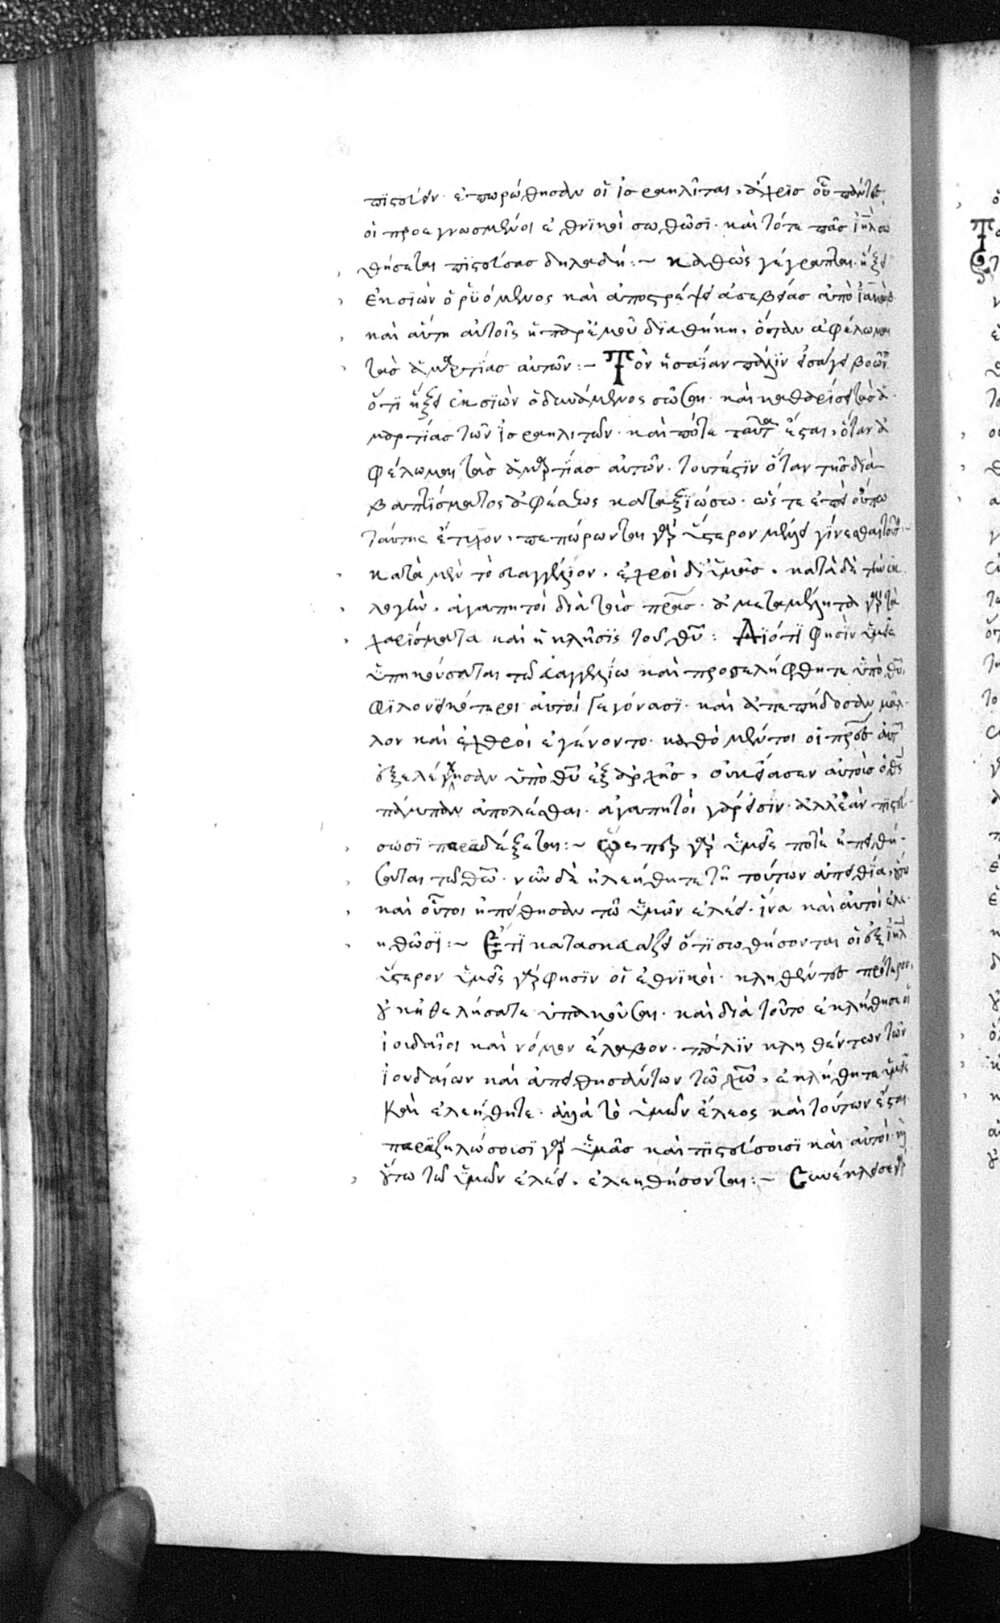 πιστεύειν ἐπωρώθησαν οἱ ἰσραηλῖται, ἄχρις οὗ πάντες
οἱ προεγνωσμένοι ἐθνικοὶ σωθῶσι· καὶ τότε πᾶς ἰηλ σω
θήσεται πιστεύσας δηλαδή :~ καθὼς γέγραπται· ἥξει
ἐκ σιὼν ὁ ῥυόμενος καὶ ἀποστρέψει ἀσεβείας ἀπὸ ἰακώβ
καὶ αὕτη αὐτοῖς ἡ παρ' ἐμοῦ διαθήκη, ὅταν ἀφέλωμαι
τὰς ἁμαρτίας αὐτῶν :~ Τὸν ἡσαΐαν πάλιν εἰσάγει βοῶντα
ὅτι ἥξει ἐκ σιὼν ὁ δυνάμενος σῶσαι· καὶ καθαρίσει τὰς ἁ
μαρτίας τῶν ἰσραηλιτῶν· καὶ πότε ταῦτα ἔσται, ὅταν ἀ
φέλωμαι τὰς ἁμαρτίας αὐτῶν· τουτέστιν ὅταν τῆς διὰ
βαπτίσματος ἀφέσεως καταξιώσω· ὥστε ἐπεὶ οὔπω
ταύτης ἔτυχον, πεπώρωνται ὕστερον γίνεσθαι
κατὰ μὲν τὸ εὐαγγέλιον, ἐχθροὶ δι' ὑμᾶς, κατὰ δὲ τὴν ἐκ
λογὴν, ἀγαπητοὶ διὰ τοὺς πρας· ἀμεταμέλητα γὰρ τὰ
χαρίσματα καὶ ἡ κλῆσις τοῦ θυ : Διότι φησὶν ὑμεῖς
ὑπηκούσατε τῶ εὐαγγελίω καὶ προσελήφθητε ὑπὸ θυ,
φιλονεικότεροι αὐτοὶ γεγόνασι· καὶ ἀπεπήδησαν μᾶλ
λον καὶ ἐχθροὶ ἐγένοντο· καθὸ μέντοι οἱ πρες αὐτῶν
ἐξελέγησαν ὑπὸ θυ ἐξ ἀρχῆς, οὐκ εἴασεν αὐτοὺς ὁ θς
πάμπαν ἀπολέσθαι· ἀγαπητοὶ γάρ εἰσιν· ἀλλ' ἐὰν πιστεύ
σωσι παραδέξεται :~ ὥσπερ γὰρ ὑμεῖς ποτὲ ἠπειθή
σατε τῶ θω· νῦν δὲ ἠλεήθητε τῆ τούτων ἀπειθεία, οὕτω
καὶ οὗτοι ἠπείθησαν τῶ ὑμῶν ἐλέει· ἵνα καὶ αὐτοὶ ἐλε
ηθῶσι :~ Ἔτι κατασκευάζει ὅτι σωθήσονται οἱ ἐξ ἰηλ
ὕστερον ὑμεῖς γάρ φησιν οἱ ἐθνικοὶ· κληθέντες πρότερον,
οὐκ ἠθελήσατε ὑπακοῦσαι· καὶ διὰ τοῦτο ἐκλήθησαν οἱ
ἰουδαῖοι καὶ νόμον ἔλαβον· πάλιν κληθέντων τῶν
ἰουδαίων καὶ ἀπειθησάντων τῶ χω, ἐκλήθητε ὑμεῖς
καὶ ἐλεήθητε· ἀλλὰ τὸ ὑμῶν ἔλεος καὶ τούτων ἔσται
παραζηλώσουσι γὰρ ὑμᾶς καὶ πιστεύσουσι καὶ αὐτοὶ· καὶ
οὕτω τῶ ὑμῶν ἐλέει, ἐλεηθήσονται :~ Συνέκλεισε γὰρ